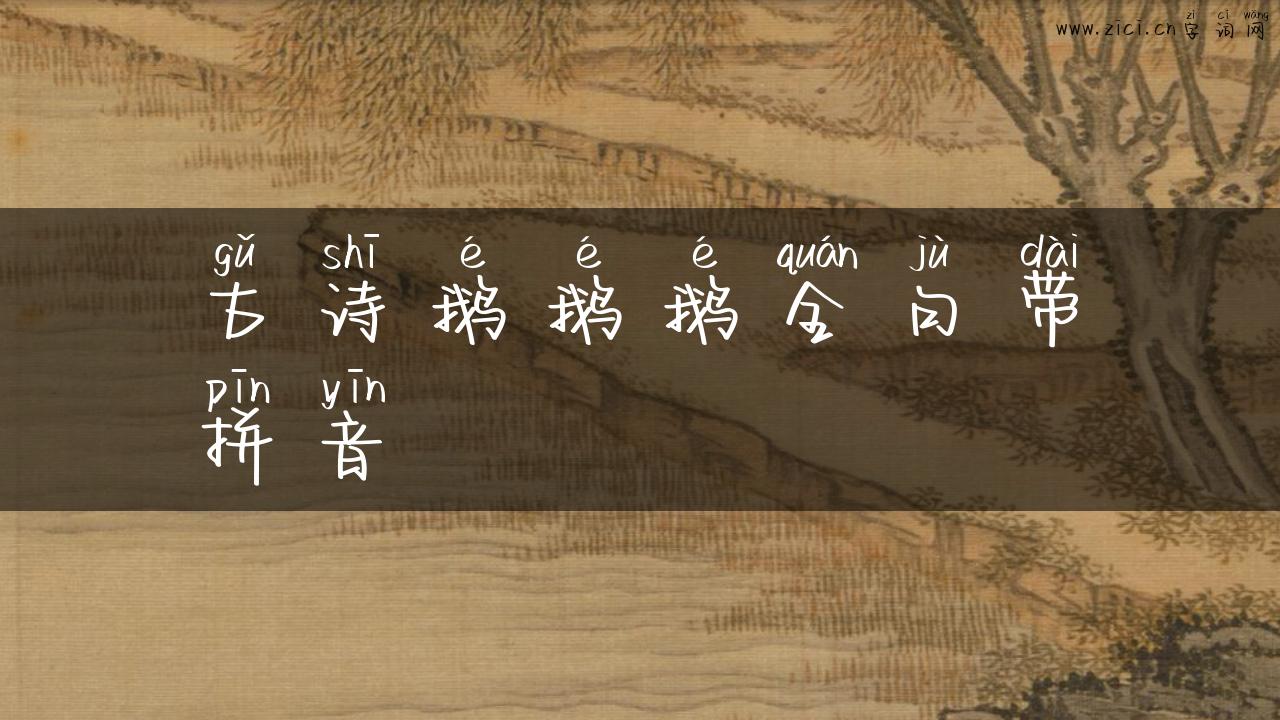 zì cí wǎng
www.zici.cn字词网
gǔ shī é é é quán jù dài
古诗鹅鹅鹅全句带
pīn yīn
拼音